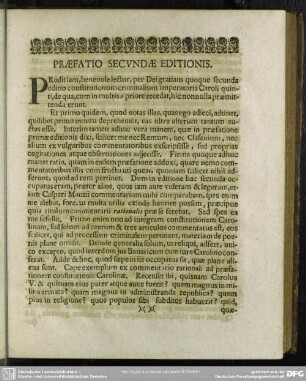 PRÆFATIO SECVNDÆ EDITIONIS.
PRodit iam, benevole lector, per Dei gratiam quoque secunda
editio constitutionum criminalium imperatoris Caroli quin-
ti, de qua, cum in multis a priore recedat, hic nonnulla præmit-
tenda erunt.
Et primo quidem, quod notas illas, quas ego adieci, attinet,
quilibet primo intuitu deprehendet, eas ultra alterum tantum au-
ctas esse. Interim tamen adhuc vera manent, quæ in præfatione
primæ editionis dixi, scilicet me nec Remum, nec Clasenium, nec
alium ex vulgaribus commentatoribus exscripsisse, sed proprias
cogitationes atque observationes adiecisse. Firma quoque adhuc
manet ratio, quam in eadem præfatione addoxi, quare nemo com-
mentatoribus illis cum fructu uti queat, quoniam scilicet nihil
ferent, quod ad rem pertinet. Dum in editione hac secunda oc-
cupatus eram, præter alios, quos tam aure videram & legeram, et-
iam Caspari Manzii commentarium mihi comparabam, spes enim
me alebat, fore, ut multa utilia exinde haurire possim, præcipue
quia titulus commentarii rationalis præ se ferebat. Sed spes ea
me fefellit. Primo enim non ad integram constitutionem Caro-
linam, sed solum ad centum & tres articulos commentatus est, eos
scilicet, qui ad processum criminalem pertinent, materiam de poe-
nis plane omisit. Deinde generalia solum, ut reliqui, adfert, uni-
co excepto, quod interdum jus Bavaricum cum iure Carolino con-
ferat. Adde & hoc, quod sæpenumero occupatus sit, quæ plane ali-
ena sunt. Cape exemplum ex commentario rationali ad præfa-
tionem constitutionis Carolinæ. Recenset ibi, quisnam Carolus
V. & quisnam eius pater atque annus fuerit? quam magnus in mi-
litia armata? quam magnus in administranda republica? quam
pius in religione? quos populos sibi subditos habuerit? quid,
)( )(
quæ-